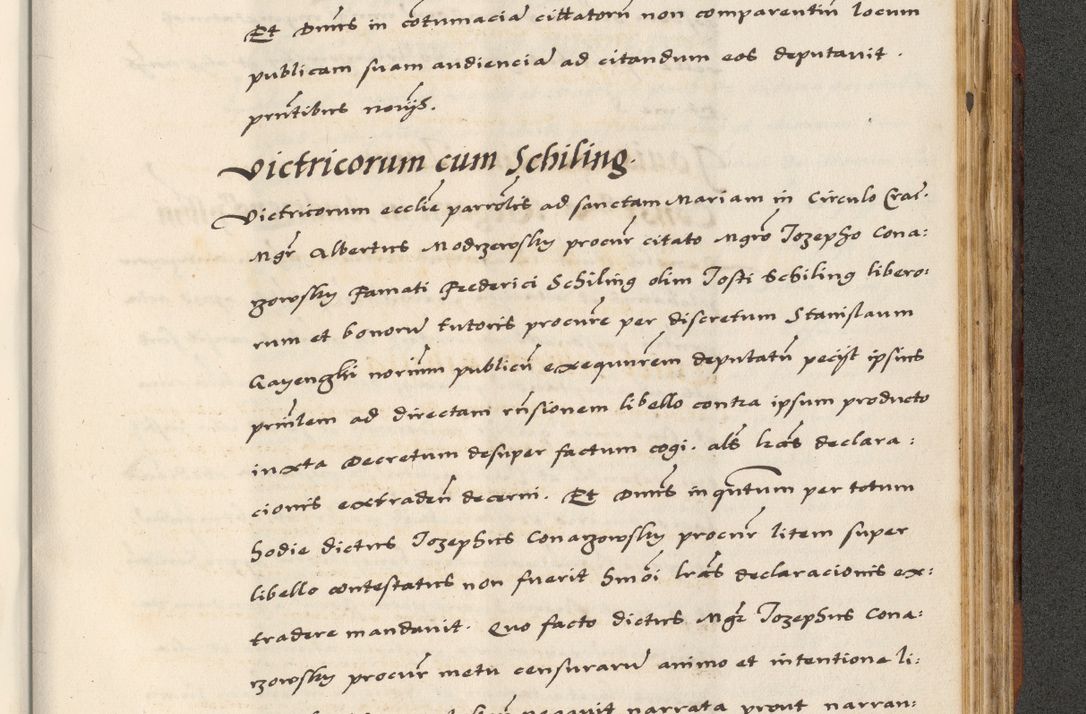 Et Dnus in cotumacia cittatoru non comparentiu locum
publicam suam audiencia ad citandum eos deputavit .
pntibus noviis.
Victricorum cum Schiling.
Victricorum ecclie parrolis ad sanctam Mariam in Circulo Crac.
Mgr Albertus Modrzewsky procur citato Mgro Jozepho Cona:
rzowsky Famati Frederici Schiling olim Josti Schiling libero:
rum et bonoru tutoris procure per discretum Stanislaum
Gayengki norium publicu exequutem deputatu peciit ipsius
prinlem ad directam rnsionem libello contra ipsum producto
iuxta Decretum desuper factum cogi. als lras declara:
cionis extraden decerni. Et Dnus inqntum per totum
hodie dictus Jozephus Conarzowsky procur litem super
libello contestatus non fuerit hmoi lras declaracionis ex:
tradere mandavit. Quo facto dictus Mgr Jozephus Cona:
rzowsky procur metu censuraru animo et intentione li:
negavit narrata prout narran: